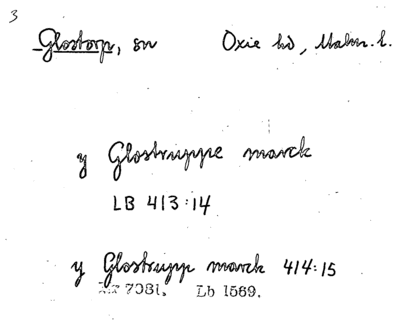 3
Glostorp, sn Oxie hd, Malm. l.
y Glostruppe marck
LB 413:14
y Glostrupp marck 414:15
7081. Lb 1569.